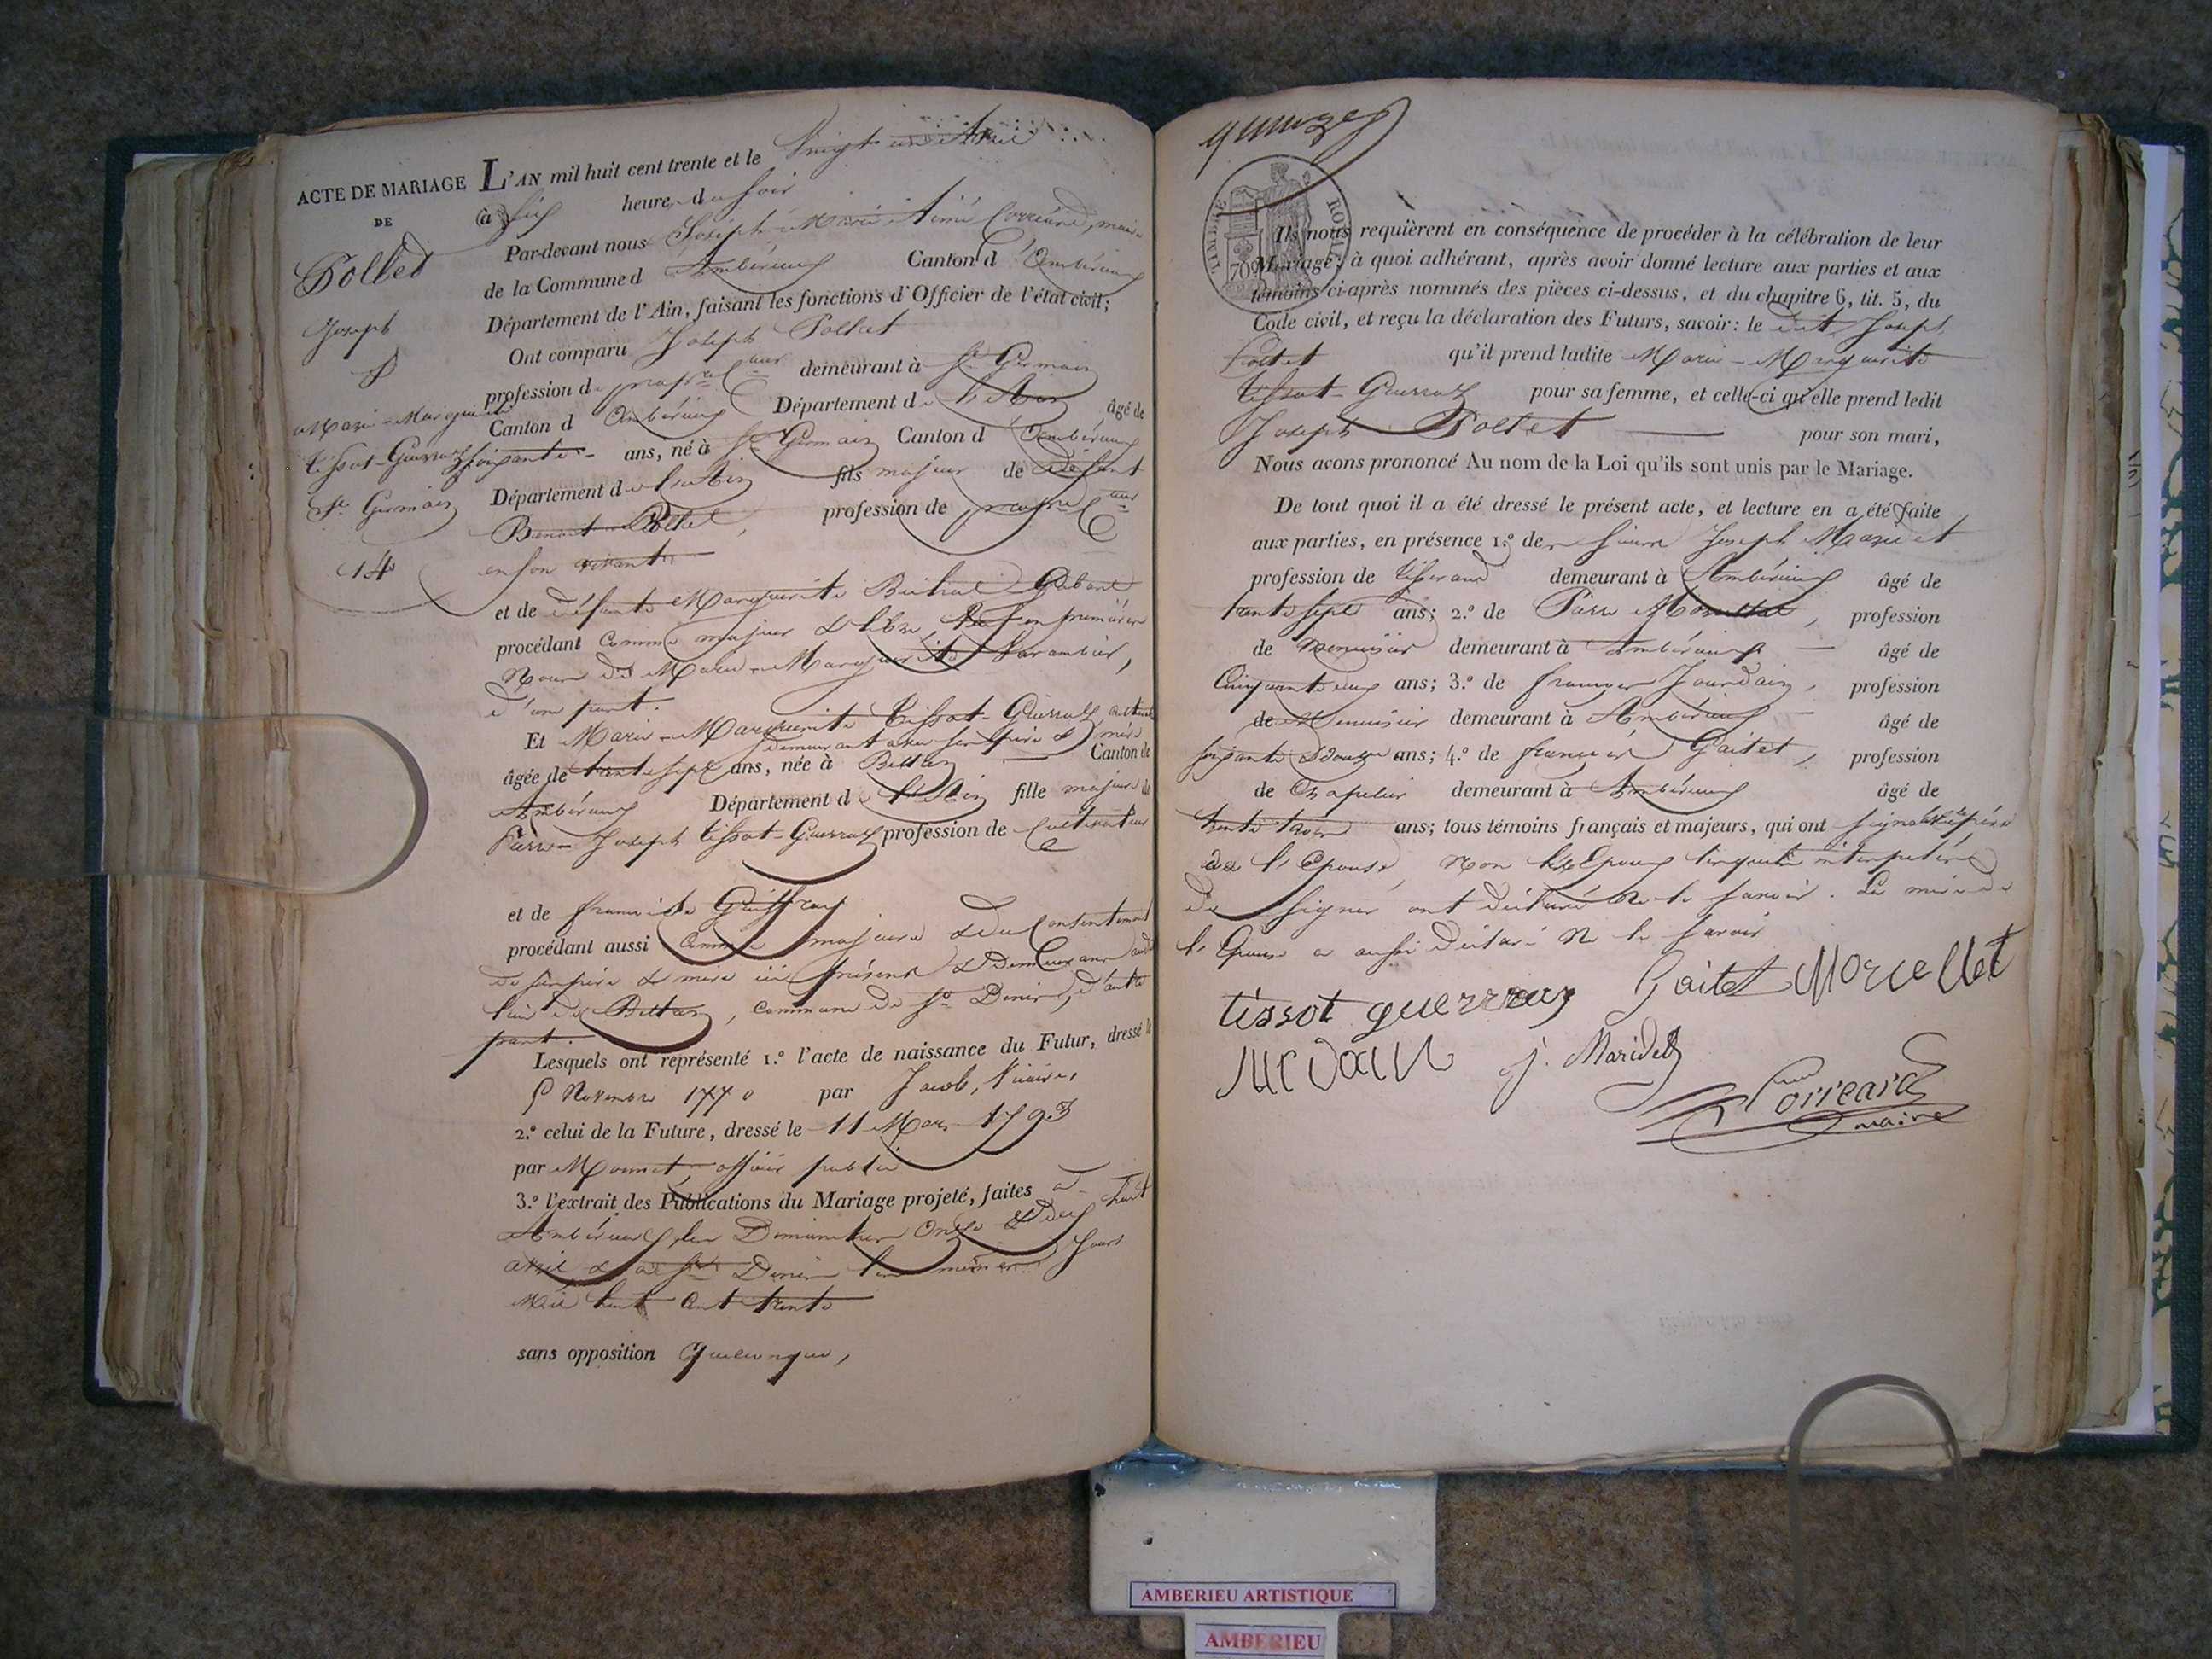 ACTE DE MARIAGE
DE
Pollet
Joseph
&
Marie-Marguerite
tissot-Guerraz
St. Germain
14
L'AN mil huit cent trente et le Vingt un Avril
à Six heure du Soir
Par-devant nous Joseph-Marie-Aimé Corréard, maire
de la Commune d'Ambérieux Canton d'Ambérieux
Département de l'Ain, faisant les fonctions d'Officier de l'état civil;
Ont comparu Joseph Pollet
profession de demeurant à St. Germain
Canton d'Ambérieux Département de l'Ain âgé de
soixante ans, né à St. Germain Canton d'Ambérieux
Département de l'Ain fils majeur de défunt
Benoit Pollet, profession de
en son vivant
et de défunte Marguerite
procédant Comme majeur & libre, en premières
Noces de Marie-Marguerite
d'une part.
Et Marie-Marguerite Tissot-Guerraz,
demeurant avec ses père & mère
âgée de trente sept ans, née à Bettan Canton de
Ambérieux Département de l'Ain fille majeure de
Pierre-Joseph tissot-Guerraz profession de Cultivateur
et de
procédant aussi Comme majeure & du Consentement
de ses père & mère ici présens & Demeurans audit
lieu de Bettan, commune de St. Denis, d'autre
part.
Lesquels ont représenté 1.° l'acte de naissance du Futur, dressé le
Novembre 1770 par Jacob, Vicaire,
2.° celui de la Future, dressé le 11 Mars 1793
par Monnet, officier public
3.° l'extrait des Publications du Mariage projeté, faites à
Ambérieux les Dimanches Onze & Dix huit
avril & à St. Denis les mêmes Jours
Mil huit Cent trente
sans opposition Quelconque,
TIMBRE ROYAL
70
Ils nous requièrent en conséquence de procéder à la célébration de leur
Mariage; à quoi adhérant, après avoir donné lecture aux parties et aux
témoins ci-après nommés des pièces ci-dessus, et du chapitre 6, tit. 5, du
Code civil, et reçu la déclaration des Futurs, savoir: le dit Joseph
Pollet qu'il prend ladite Marie-Marguerite
tissot-Guerraz pour sa femme, et celle-ci qu'elle prend ledit
Joseph Pollet pour son mari,
Nous avons prononcé Au nom de la Loi qu'ils sont unis par le Mariage.
De tout quoi il a été dressé le présent acte, et lecture en a été faite
aux parties, en présence 1.° de Joseph Maridet
profession de tisserand demeurant à Ambérieux âgé de
trente sept ans; 2.° de Pierre Morcellet, profession
de Menuisier demeurant à Ambérieux âgé de
Cinquante deux ans; 3.° de françois Jourdain, profession
de Menuisier demeurant à Ambérieux âgé de
soixante & douze ans; 4.° de françois Gaitet, profession
de Chapelier demeurant à Ambérieux âgé de
trente trois ans; tous témoins français et majeurs, qui ont signé & le père
de l'Epouse, Non les Epoux
de signer ont déclaré Ne le savoir. La mère de
l'Epouse a aussi déclaré Ne le savoir
tissot guerraz Gaitet Morcellet
j. Maridet
Corréard
maire
AMBERIEU ARTISTIQUE
AMBERIEU